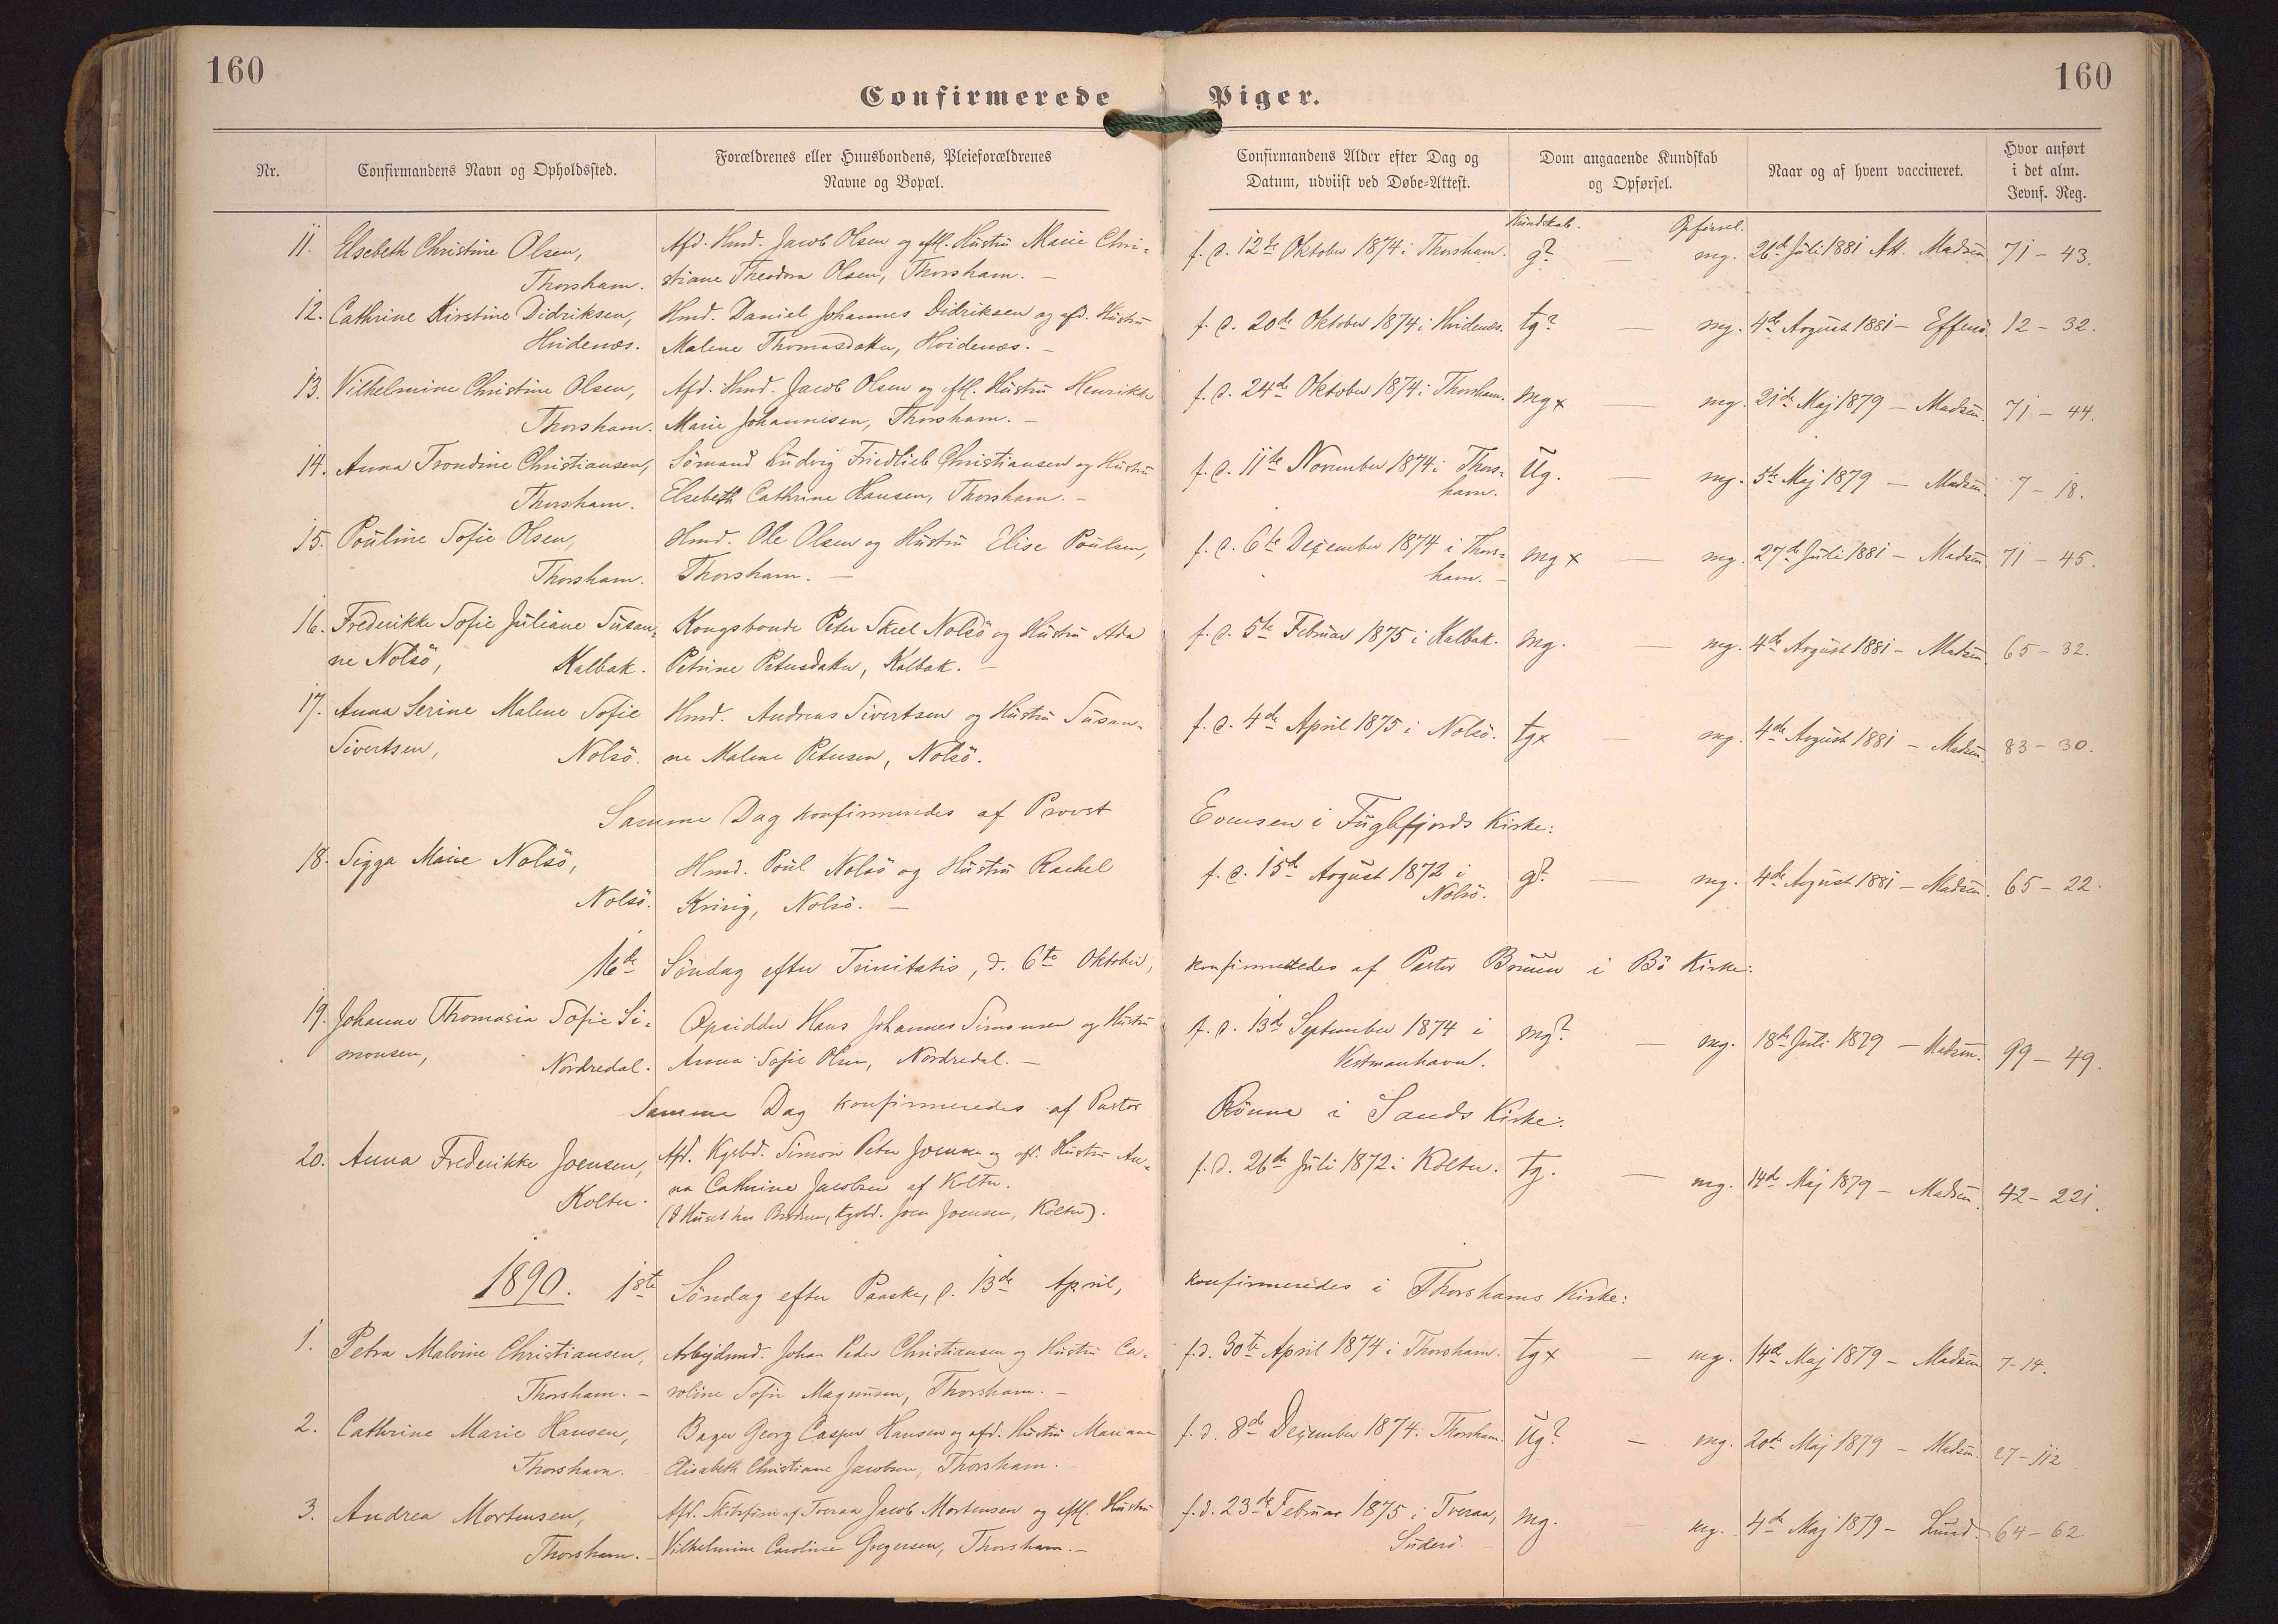 160
160
Confirmerede Piger.
Nr.
Confirmandens Navn og Opholdssted.
Forældrenes eller Huusbondens, Pleieforældrenes
Navne og Bopæl.
Confirmandens Alder efter Dag og
Datum, udviist ved Døbe-Attest.
Dom angaaende Kundskab
og Opførsel.
Naar og af hvem vaccineret.
Hvor anført
i det alm.
Jevnf. Reg.
Kundskab. Opførsel.
11. Elsebeth Christine Olsen, Afd. Hmd. Jacob Olsen og eftl. Hustru Marie Chri- f. d. 12te Oktober 1874 i Thorsham. g? — mg. 26de Juli 1881 Att. Madsen 71 - 43.
Thorsham. stiane Theodora Olsen, Thorsham. —
12. Cathrine Kirstine Didriksen, Hmd. Daniel Johannes Didriksen og afd. Hustru f. d. 20de Oktober 1874 i Hvidenæs. tg? — mg. 4de August 1881 — Effersö. 12 - 32.
Hvidenæs. Malene Thomasdatter, Hvidenæs. —
13. Vilhelmine Christine Olsen, Afd. Hmd. Jacob Olsen og eftl. Hustru Henrikke f. d. 24de Oktober 1874 i Thorsham. mg x — mg. 21de Maj 1879 — Madsen. 71 - 44.
Thorsham. Marie Johannesen, Thorsham. —
14. Anna Trondine Christiansen, Sömand Ludvig Friedlieb Christiansen og Hustru f. d. 11te November 1874 i Thors- Ug. — mg. 5te Maj 1879 — Madsen. 7 - 18.
Thorsham. Elsebeth Cathrine Hansen, Thorsham. — ham.
15. Pouline Sofie Olsen, Hmd. Ole Olsen og Hustru Elise Poulsen, f. d. 6te December 1874 i Thors- mg x — mg. 27de Juli 1881 — Madsen 71 - 45.
Thorsham. Thorsham. — ham. —
16. Frederikke Sofie Juliane Susan- Kongsbonde Peter Skeel Nolsö og Hustru Ada f. d. 5te Februar 1875 i Kalbak. mg. — mg. 4de August 1881 — Madsen. 65 - 32.
ne Nolsö, Kalbak. Petrine Petersdatter, Kalbak. —
17. Anna Serine Malene Sofie Hmd. Andreas Sivertsen og Hustru Susan- f. d. 4de April 1875 i Nolsö. tg x — mg. 4de August 1881 — Madsen. 83 - 30.
Sivertsen, Nolsö. ne Malene Petersen, Nolsö.
Samme Dag konfirmeredes af Provst Evensen i Fuglefjords Kirke:
18. Sigga Marie Nolsö, Hmd. Poul Nolsö og Hustru Rachel f. d. 15de August 1872 i g? — mg. 4de August 1881 — Madsen. 65 - 22.
Nolsö. Nolsö. — Nolsö.
16de Söndag efter Trinitatis, d. 6te Oktober, konfirmeredes af Pastor Bruun i Bö Kirke:
19. Johanne Thomasia Sofie Si- Opsidder Hans Johannes Simonsen og Hustru f. d. 13de September 1874 i mg? — mg. 18de Juli 1879 — Madsen. 99 - 49.
monsen, Nordredal. Anna Sofie Olsen, Nordredal. — Vestmanhavn.
Samme Dag konfirmeredes af Pastor Rönne i Sands Kirke:
20. Anna Frederikke Joensen, Afd. Kgsbd. Simon Peter Joensen og afd. Hustru An- f. d. 26de Juli 1872 i Kolter. tg. — mg. 14de Maj 1879 — Madsen. 42 - 221.
Kolter. na Cathrine Jacobsen af Kolter.
(I Huset hos Broderen, Kgsbd. Joen Joensen, Kolter).
1890. 1ste Söndag efter Paaske, d. 13de April, konfirmeredes i Thorshams Kirke:
1. Petra Malvine Christiansen, Arbejdsmd. Johan Peder Christiansen og Hustru Ca- f. d. 30te April 1874 i Thorsham. tg x — mg. 14de Maj 1879 — Madsen 7 - 14.
Thorsham. — roline Sofie Magnusen, Thorsham. —
2. Cathrine Marie Hansen, Bager Georg Casper Hansen og afd. Hustru Mariane f. d. 8de December 1874 i Thorsham. Ug? — mg. 20de Maj 1879 — Madsen. 27 - 112
Thorsham. Elisabeth Christiane Jacobsen, Thorsham. —
3. Andrea Mortensen, Afd. af Tveraa Jacob Mortensen og eftl. Hustru f. d. 23de Februar 1875 i Tveraa, mg. — mg. 4de Maj 1879 — Lund. 64 - 62.
Thorsham. — Vilhelmine Caroline Gregersen, Thorsham. — Suderö.